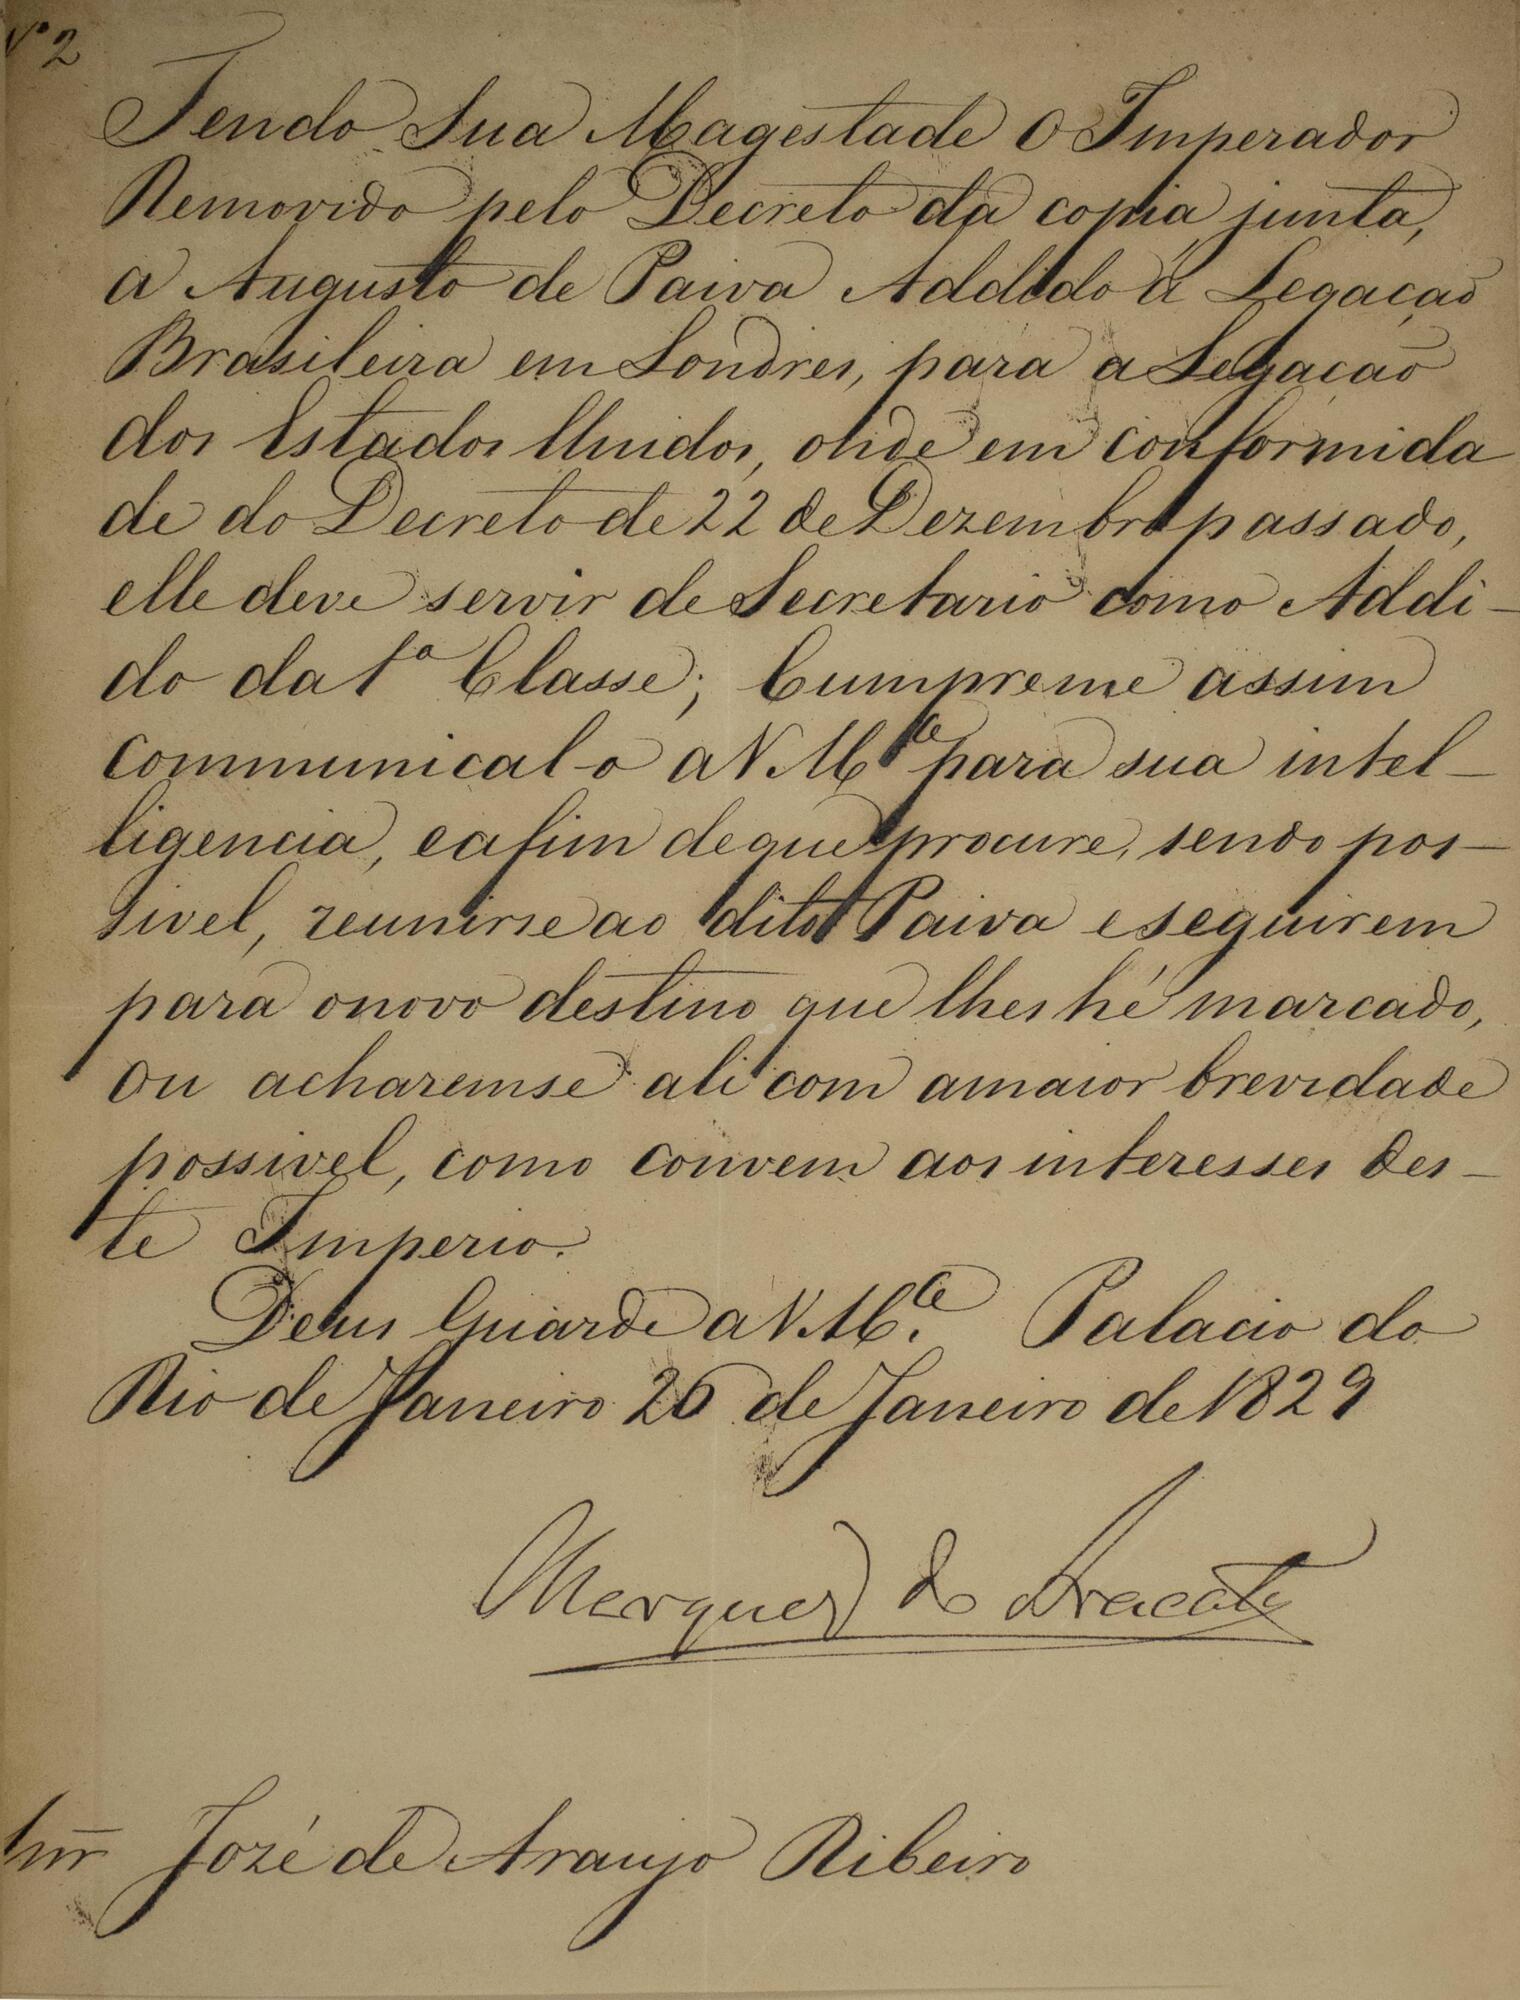 Nº 2
Tendo Sua Magestade O Imperador
Removido pelo Decreto da copia junta,
a Augusto de Paiva Addido á Legação
Brasileira em Londres, para a Legação
dos Estados Unidos, onde em conformida
de do Decreto de 22 de Dezembro passado,
elle deve servir de Secretario como Addi-
do da 1ª Classe; Cumpreme assim
communical-o a V Mce para sua intel-
ligencia, e afim de que procure, sendo pos-
sivel, reunirse ao dito Paiva e seguirem
para o novo destino que lhes hé marcado,
ou acharemse ali com a maior brevidade
possivel, como convem aos interesses des-
te Imperio.
Deus Guarde a V Mce. Palacio do
Rio de Janeiro 26 de Janeiro de 1829
Marquez do Aracaty
Snr José de Araujo Ribeiro